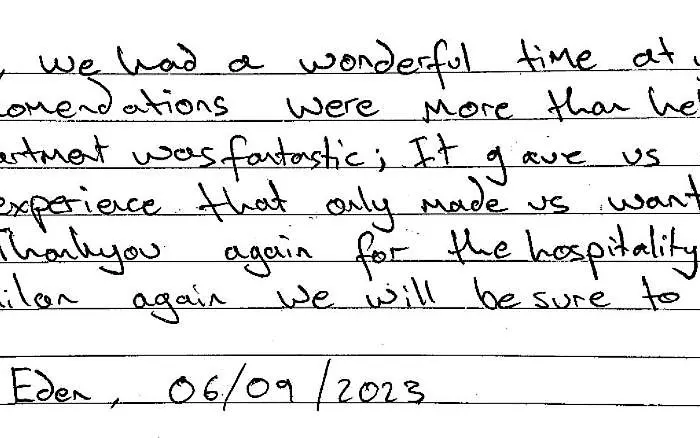 , we had a wonderful time at
omendations were more than hel
artment was fantastic; It gave us
experience that only made us want
Thankyou again for the hospitality
ilan again we will be sure to
Eden, 06/09/2023